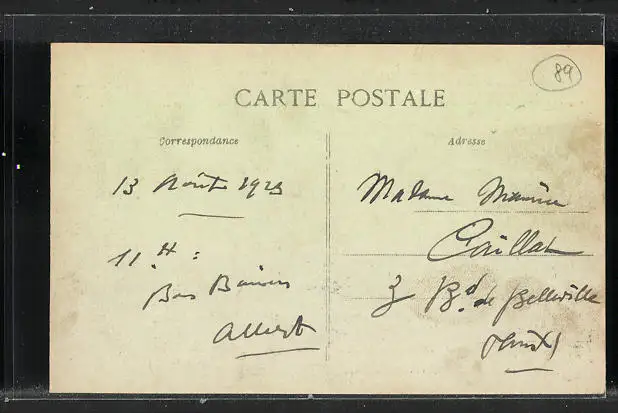 89
CARTE POSTALE
Correspondance
Adresse
13 Août 1923
11 H :
Bons Baisers
Albert
Madame Maurice
Caillat
3 Bd. de Belleville
(Paris)